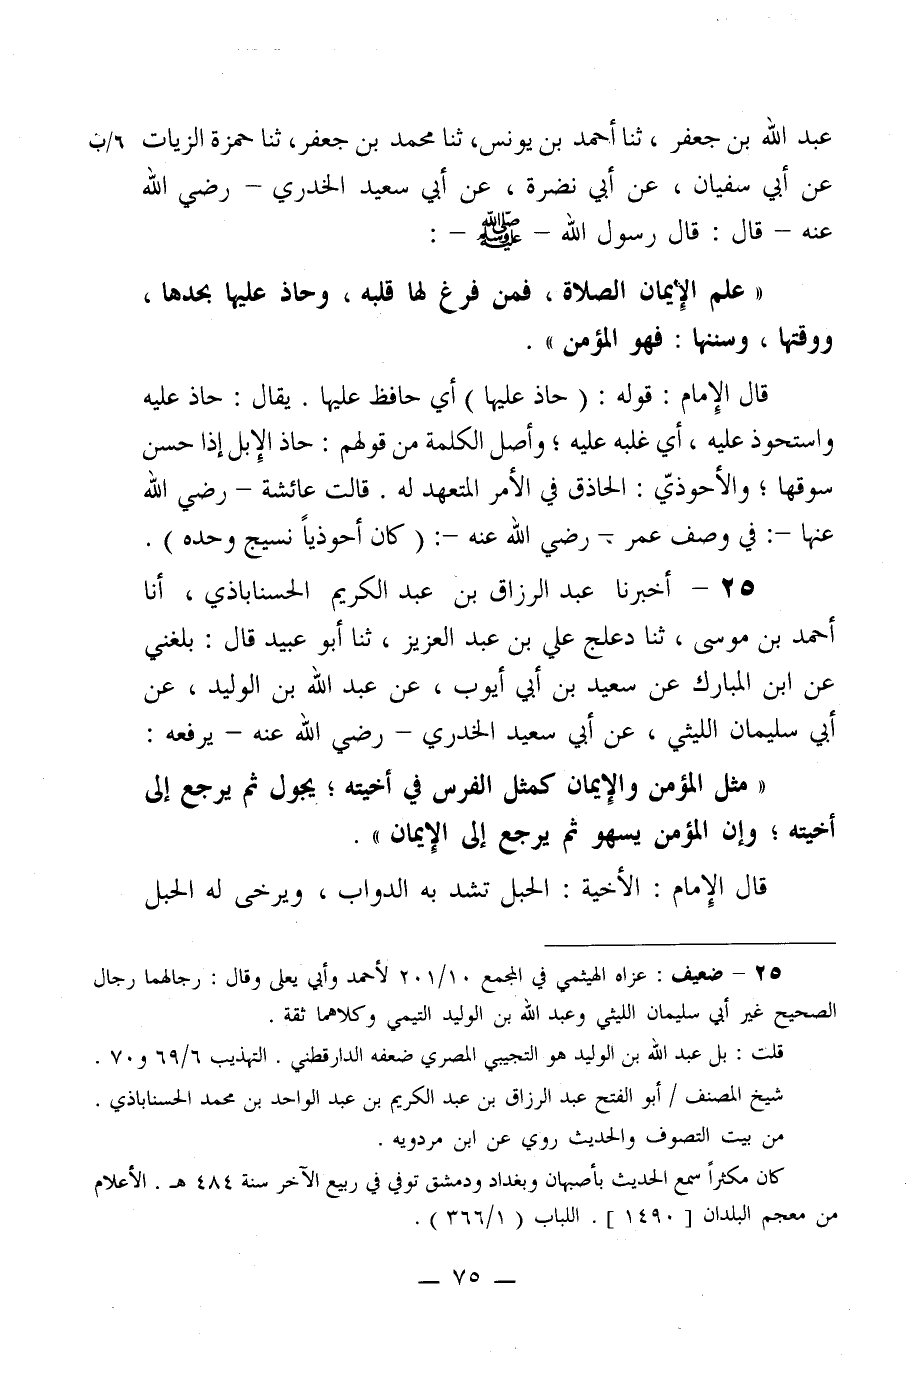 عبد الله بن جعفر ، ثنا أحمد بن يونس، ثنا محمد بن جعفر، ثنا حمزة الزيات ٦/ب
عن أبي سفيان ، عن أبي نضرة ، عن أبي سعيد الخدري – رضي الله
عنه – قال : قال رسول الله – ﷺ – :
« علم الإيمان الصلاة ، فمن فرغ لها قلبه ، وحاذ عليها بحدها ،
ووقتها ، وسننها : فهو المؤمن » .
قال الإمام : قوله : ( حاذ عليها ) أي حافظ عليها . يقال : حاذ عليه
واستحوذ عليه ، أي غلبه عليه ؛ وأصل الكلمة من قولهم : حاذ الإبل إذا حسن
سوقها ؛ والأحوذيّ : الحاذق في الأمر المتعهد له . قالت عائشة – رضي الله
عنها –: في وصف عمر – رضي الله عنه –: ( كان أحوذياً نسيج وحده ) .
٢٥ – أخبرنا عبد الرزاق بن عبد الكريم الحسناباذي ، أنا
أحمد بن موسى ، ثنا دعلج علي بن عبد العزيز ، ثنا أبو عبيد قال : بلغني
عن ابن المبارك عن سعيد بن أبي أيوب ، عن عبد الله بن الوليد ، عن
أبي سليمان الليثي ، عن أبي سعيد الخدري – رضي الله عنه – يرفعه :
« مثل المؤمن والإيمان كمثل الفرس في أخيته ؛ يجول ثم يرجع إلى
أخيته ؛ وإن المؤمن يسهو ثم يرجع إلى الإيمان » .
قال الإمام : الأخية : الحبل تشد به الدواب ، ويرخى له الحبل
٢٥ – ضعيف : عزاه الهيثمي في المجمع ٢٠١/١٠ لأحمد وأبي يعلى وقال : رجالهما رجال
الصحيح غير أبي سليمان الليثي وعبد الله بن الوليد التيمي وكلاهما ثقة .
قلت : بل عبد الله بن الوليد هو التجيبي المصري ضعفه الدارقطني . التهذيب ٦٩/٦ و٧٠ .
شيخ المصنف / أبو الفتح عبد الرزاق بن عبد الكريم بن عبد الواحد بن محمد الحسناباذي .
من بيت التصوف والحديث روي عن ابن مردويه .
كان مكثراً سمع الحديث بأصبهان وبغداد ودمشق توفي في ربيع الآخر سنة ٤٨٤ هـ . الأعلام
من معجم البلدان [ ١٤٩٠ ] . اللباب ( ٣٦٦/١ ) .
— ٧٥ —